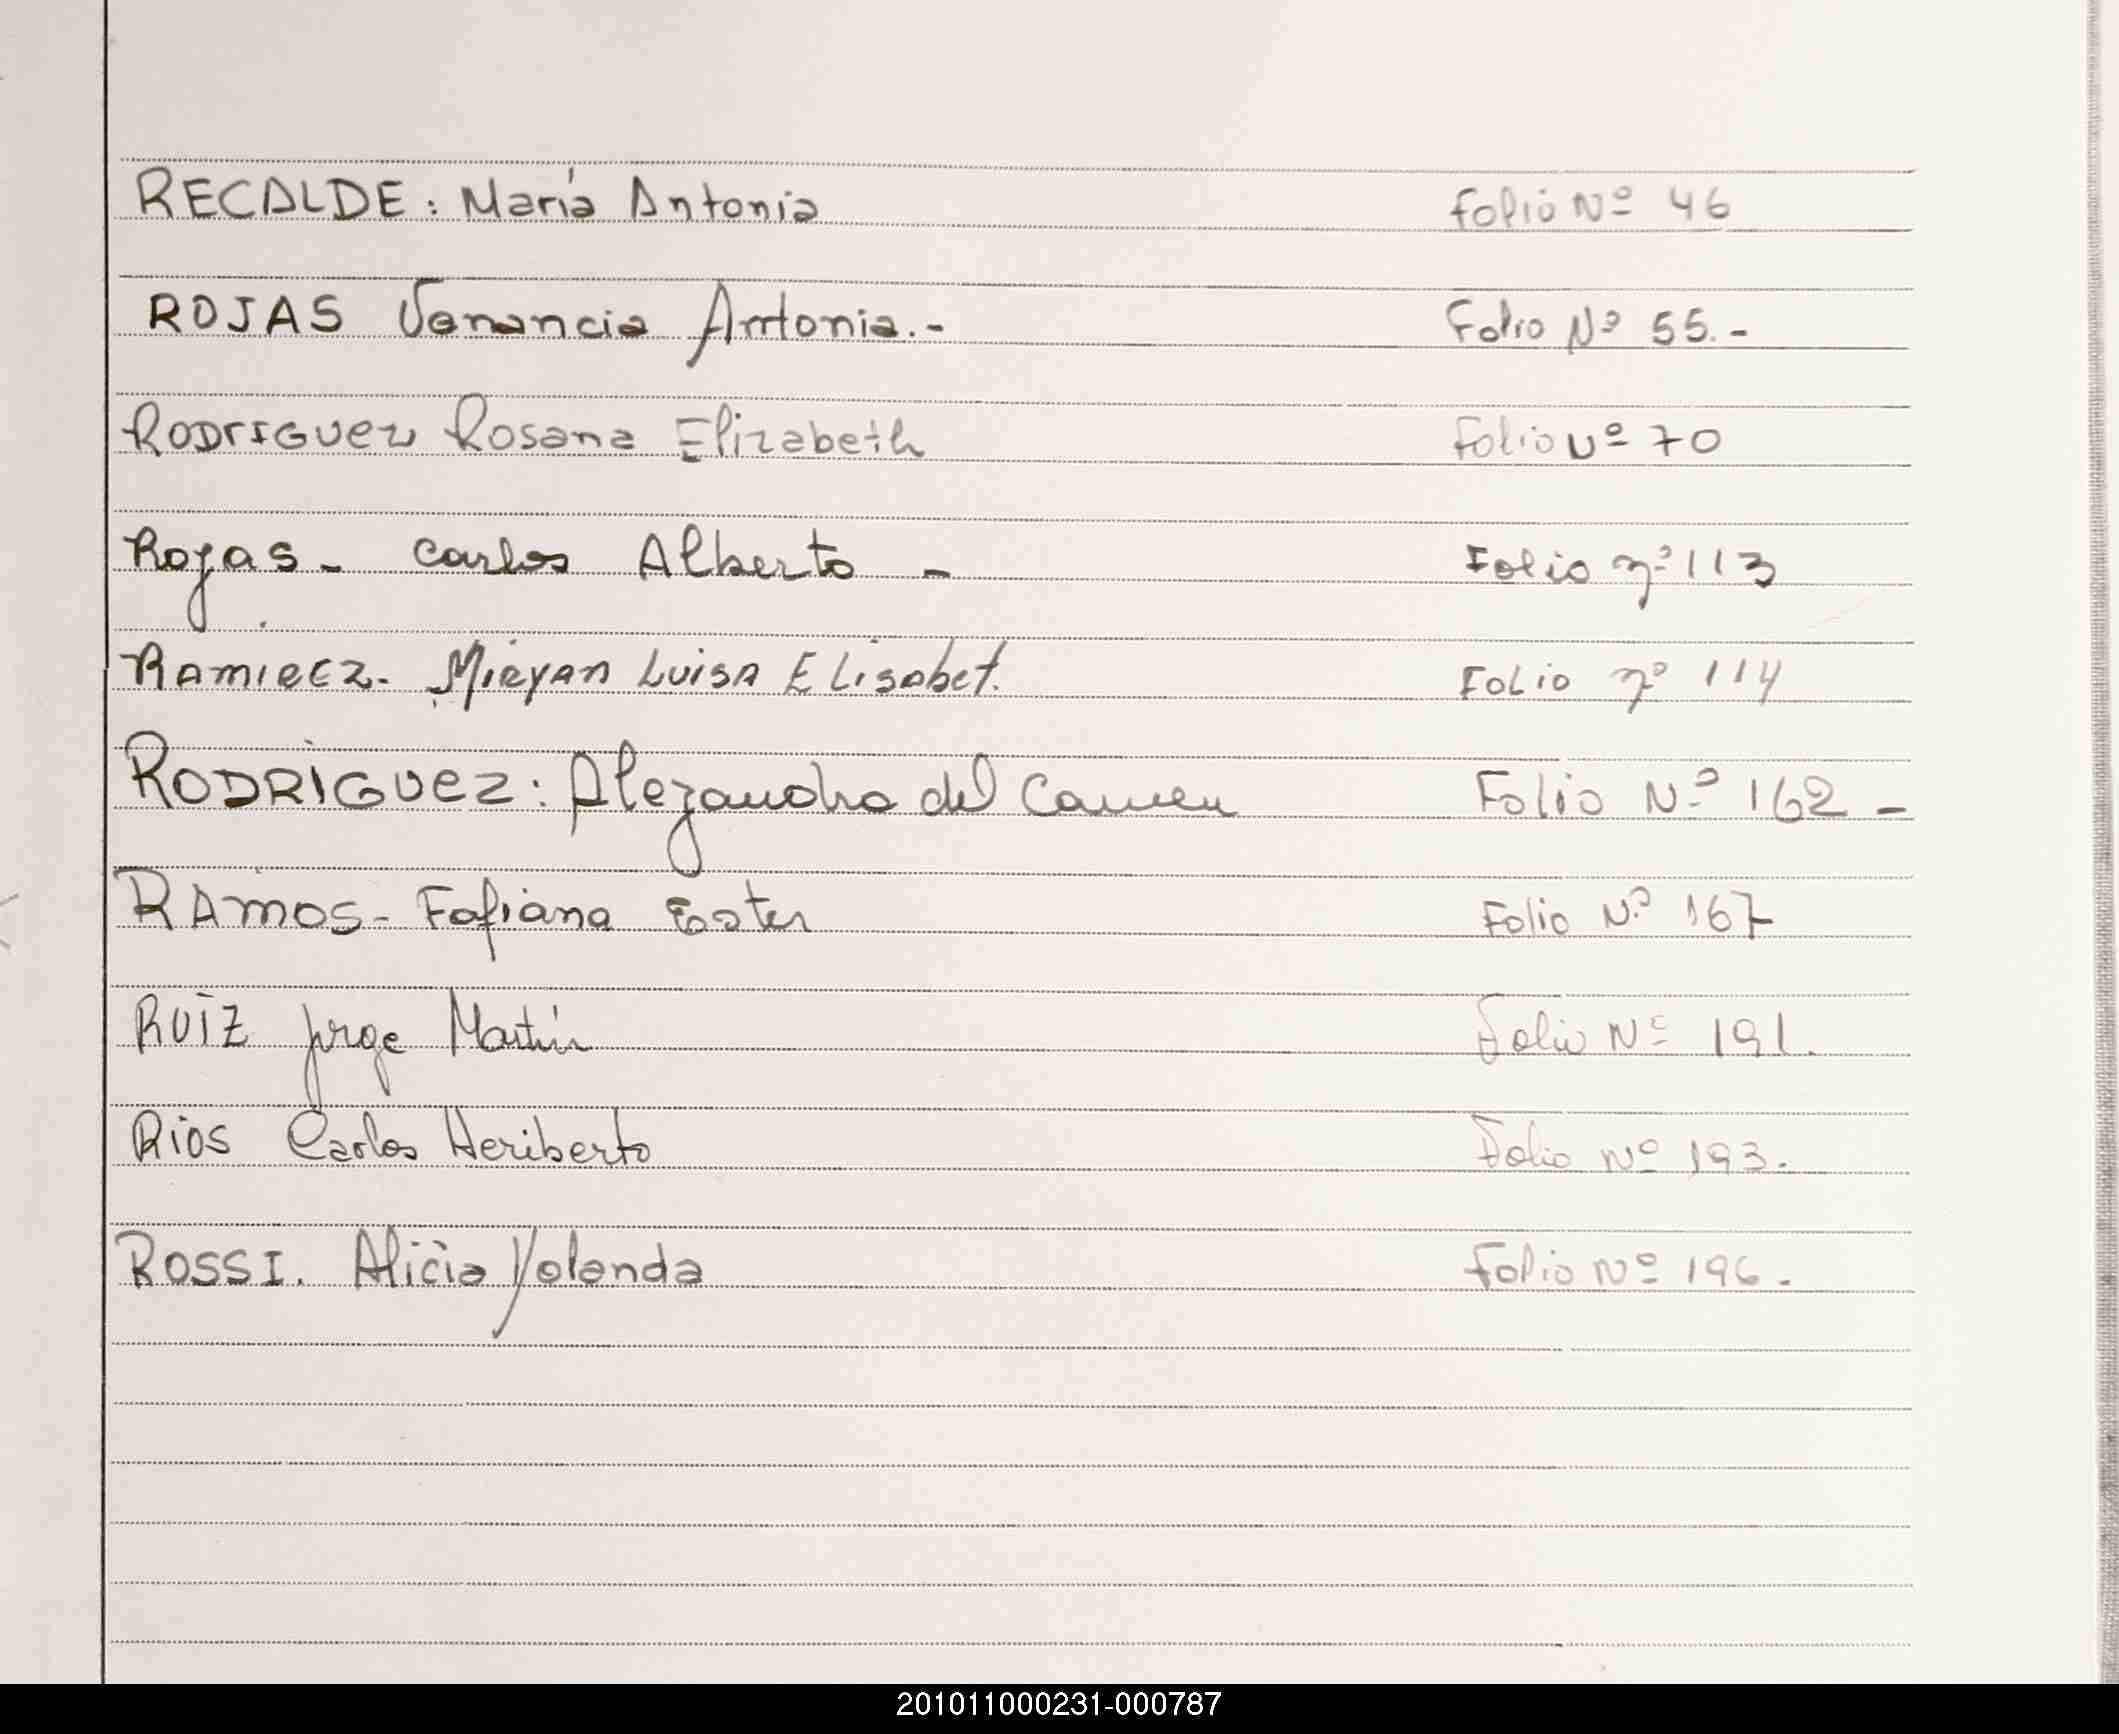 RECALDE: María Antonia Folio Nº 46
ROJAS Venancia Antonia.- Folio Nº 55.-
RODRIGUEZ Rosana Elizabeth Folio Nº 70
Rojas - Carlos Alberto - Folio nº 113
RAMIREZ - Miryan Luisa Elisabet. Folio nº 114
RODRIGUEZ: Alejandra del Carmen Folio Nº 162 -
RAMOS - Fafiana Ester Folio Nº 167
RUIZ Jorge Martín Folio Nº 191.
Rios Carlos Heriberto Folio Nº 193.
ROSSI. Alicia Yolanda Folio Nº 196.
201011000231-000787